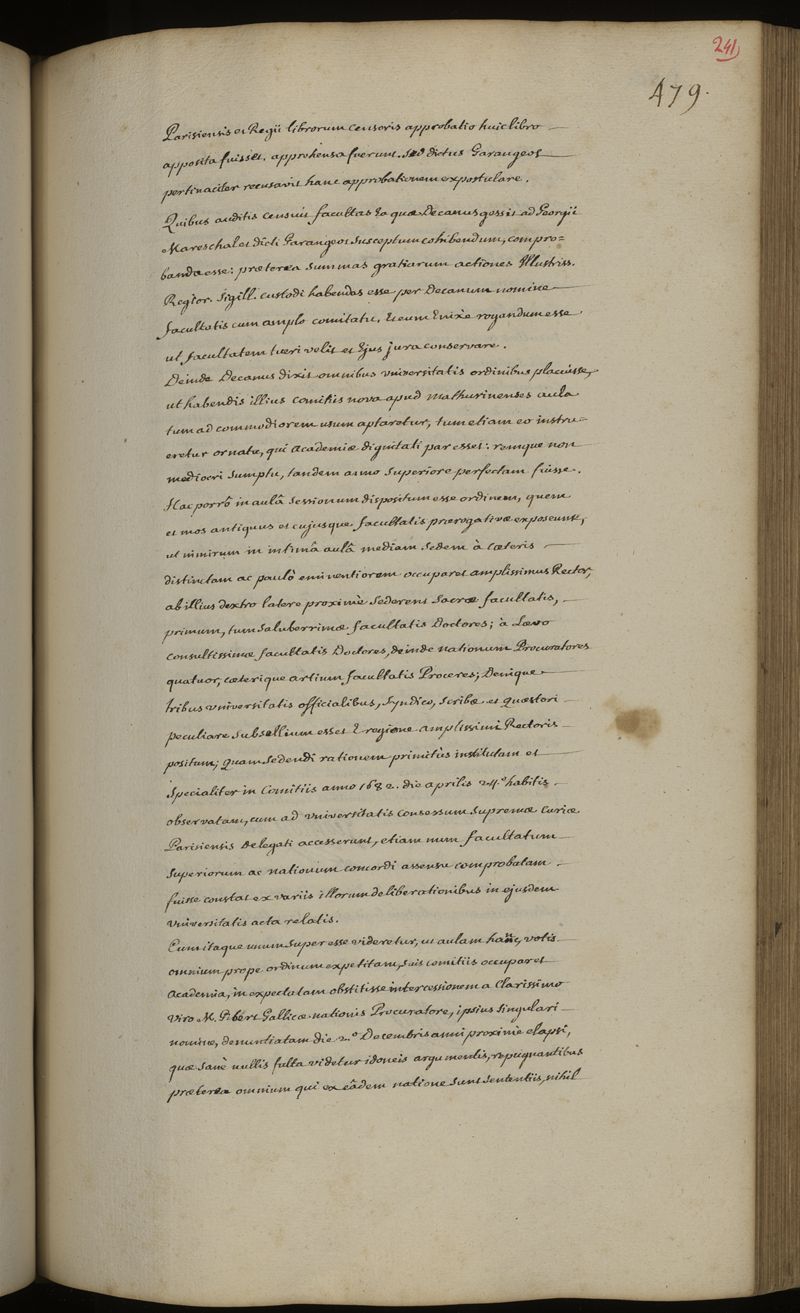 241
479.
Parisiensis et Regii librorum censoris approbatio huic libro
apposita fuisset, apprehensa fuerunt. Sed dictus Garangeot
pertinaciter recusavit hanc approbationem expostulare.
Quibus auditis censuit facultas Ea quæ Decanus gessit ad Georgii
Mareschal et dicti Garangeot susceptum cohibendum, compro=
banda esse: præterea summas gratiarum actiones Illustriss.
Regior. Sigill. custodi habendas esse per Decanum nomine
facultatis cum amplo comitatu, Eteum Enixe rogandum esse
ut facultatem tueri velit et Ejus jura conservare.
Deinde Decanus dixit omnibus universitatis ordinibus placuisse,
ut habendis illius Comitiis nova apud Mathurinenses aula
tum ad commodiorem usum aptaretur, tum etiam eo instru=
eretur ornatu, qui Academiæ dignitati par esset: remque non
mediocri Sumptu, tandem anno Superiore perfectam fuisse.
Hac porrô in aulâ Sessionum dispositum esse ordinem, quem
et mos antiquus et cujusque facultatis prærogativæ exposcunt,
ut nimirum in intimâ aulâ mediam Sedem à cæteris
distinctam ac paulô eminentiorem occuparet amplissimus Rector,
ab illius dextro latere proximè Sederent Sacræ facultatis,
primum, tum Saluberrimæ facultatis Doctores; à Lævo
Consultissimæ facultatis Doctores, deinde nationum Procuratores
quatuor, cæterique artium facultatis Proceres; Denique
tribus universitatis officialibus, Syndico, Scribæ et quæstori
peculiare Subsellium esset È regione amplissimi Rectoris
positum; quam Sedendi rationem primitùs institutam et
Specialiter in Comitiis anno 1682. die aprilis 24.º habitis
observatam, cum ad universitatis Consessum Supremæ Curiæ
Parisiensis Delegati accesserunt, etiam num facultatum
Superiorum ac nationum concordi assensu comprobatam
fuisse constat ex variis illorum deliberationibus in ejusdem
universitatis acta relatis.
Cum itaque unum Super esse videretur, ut aulam hanc, votis
omnium prope ordinum expetitam, Suis comitiis occuparet
Academia, inexpectatam obstitisse intercessionem a Clarissimo
Viro M. Gallicæ nationis Procuratore, ipsius Singulari
nomine, denuntiatam die 2.º Decembris anni proximè elapsi,
quæ Sanè nullis fulta videtur idoneis argumentis, repugnantibus
præterea omnium qui ex eâdem natione Sunt Sententiis, nihil